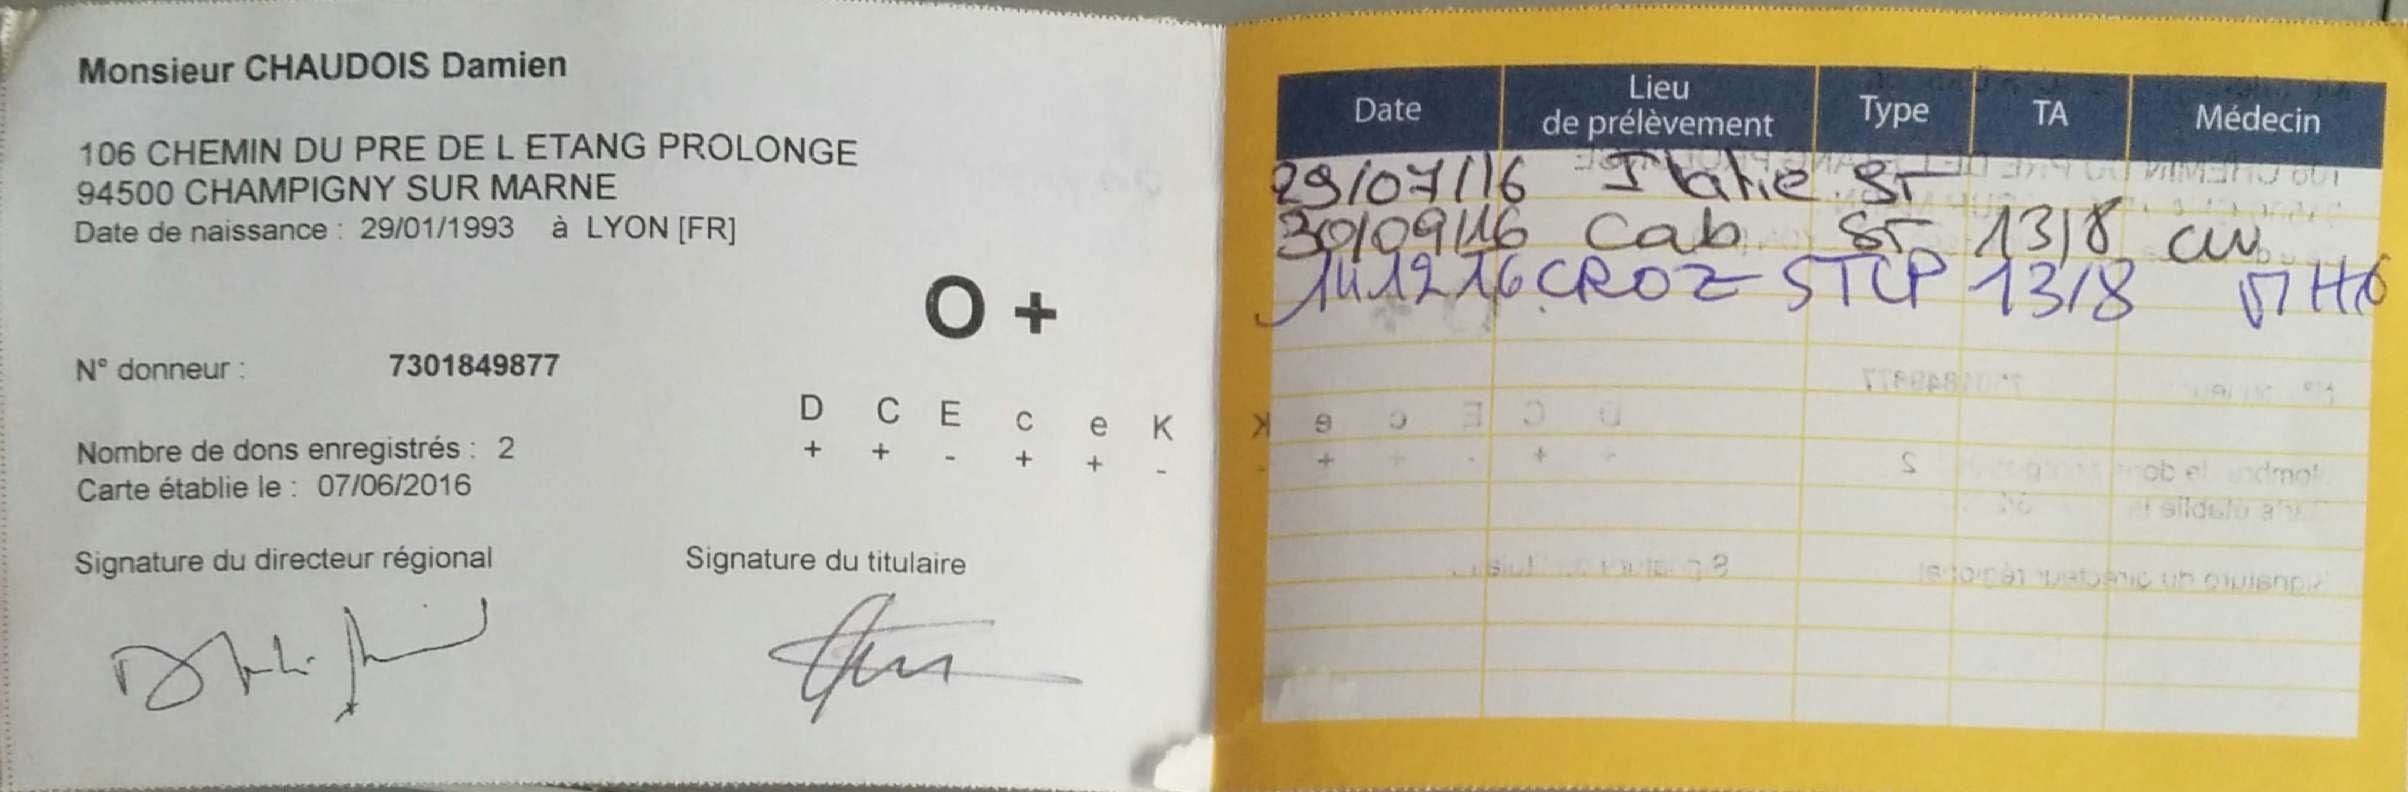 Monsieur CHAUDOIS Damien
106 CHEMIN DU PRE DE L ETANG PROLONGE
94500 CHAMPIGNY SUR MARNE
Date de naissance : 29/01/1993 à LYON [FR]
O +
N° donneur : 7301849877
D C E c e K
+ + - + + -
Nombre de dons enregistrés : 2
Carte établie le : 07/06/2016
Signature du directeur régional
Signature du titulaire
Date
Lieu
de prélèvement
Type
TA
Médecin
29/07/16 Italie ST
30/09/16 Cab ST 13/8
CROZ STCP 13/8